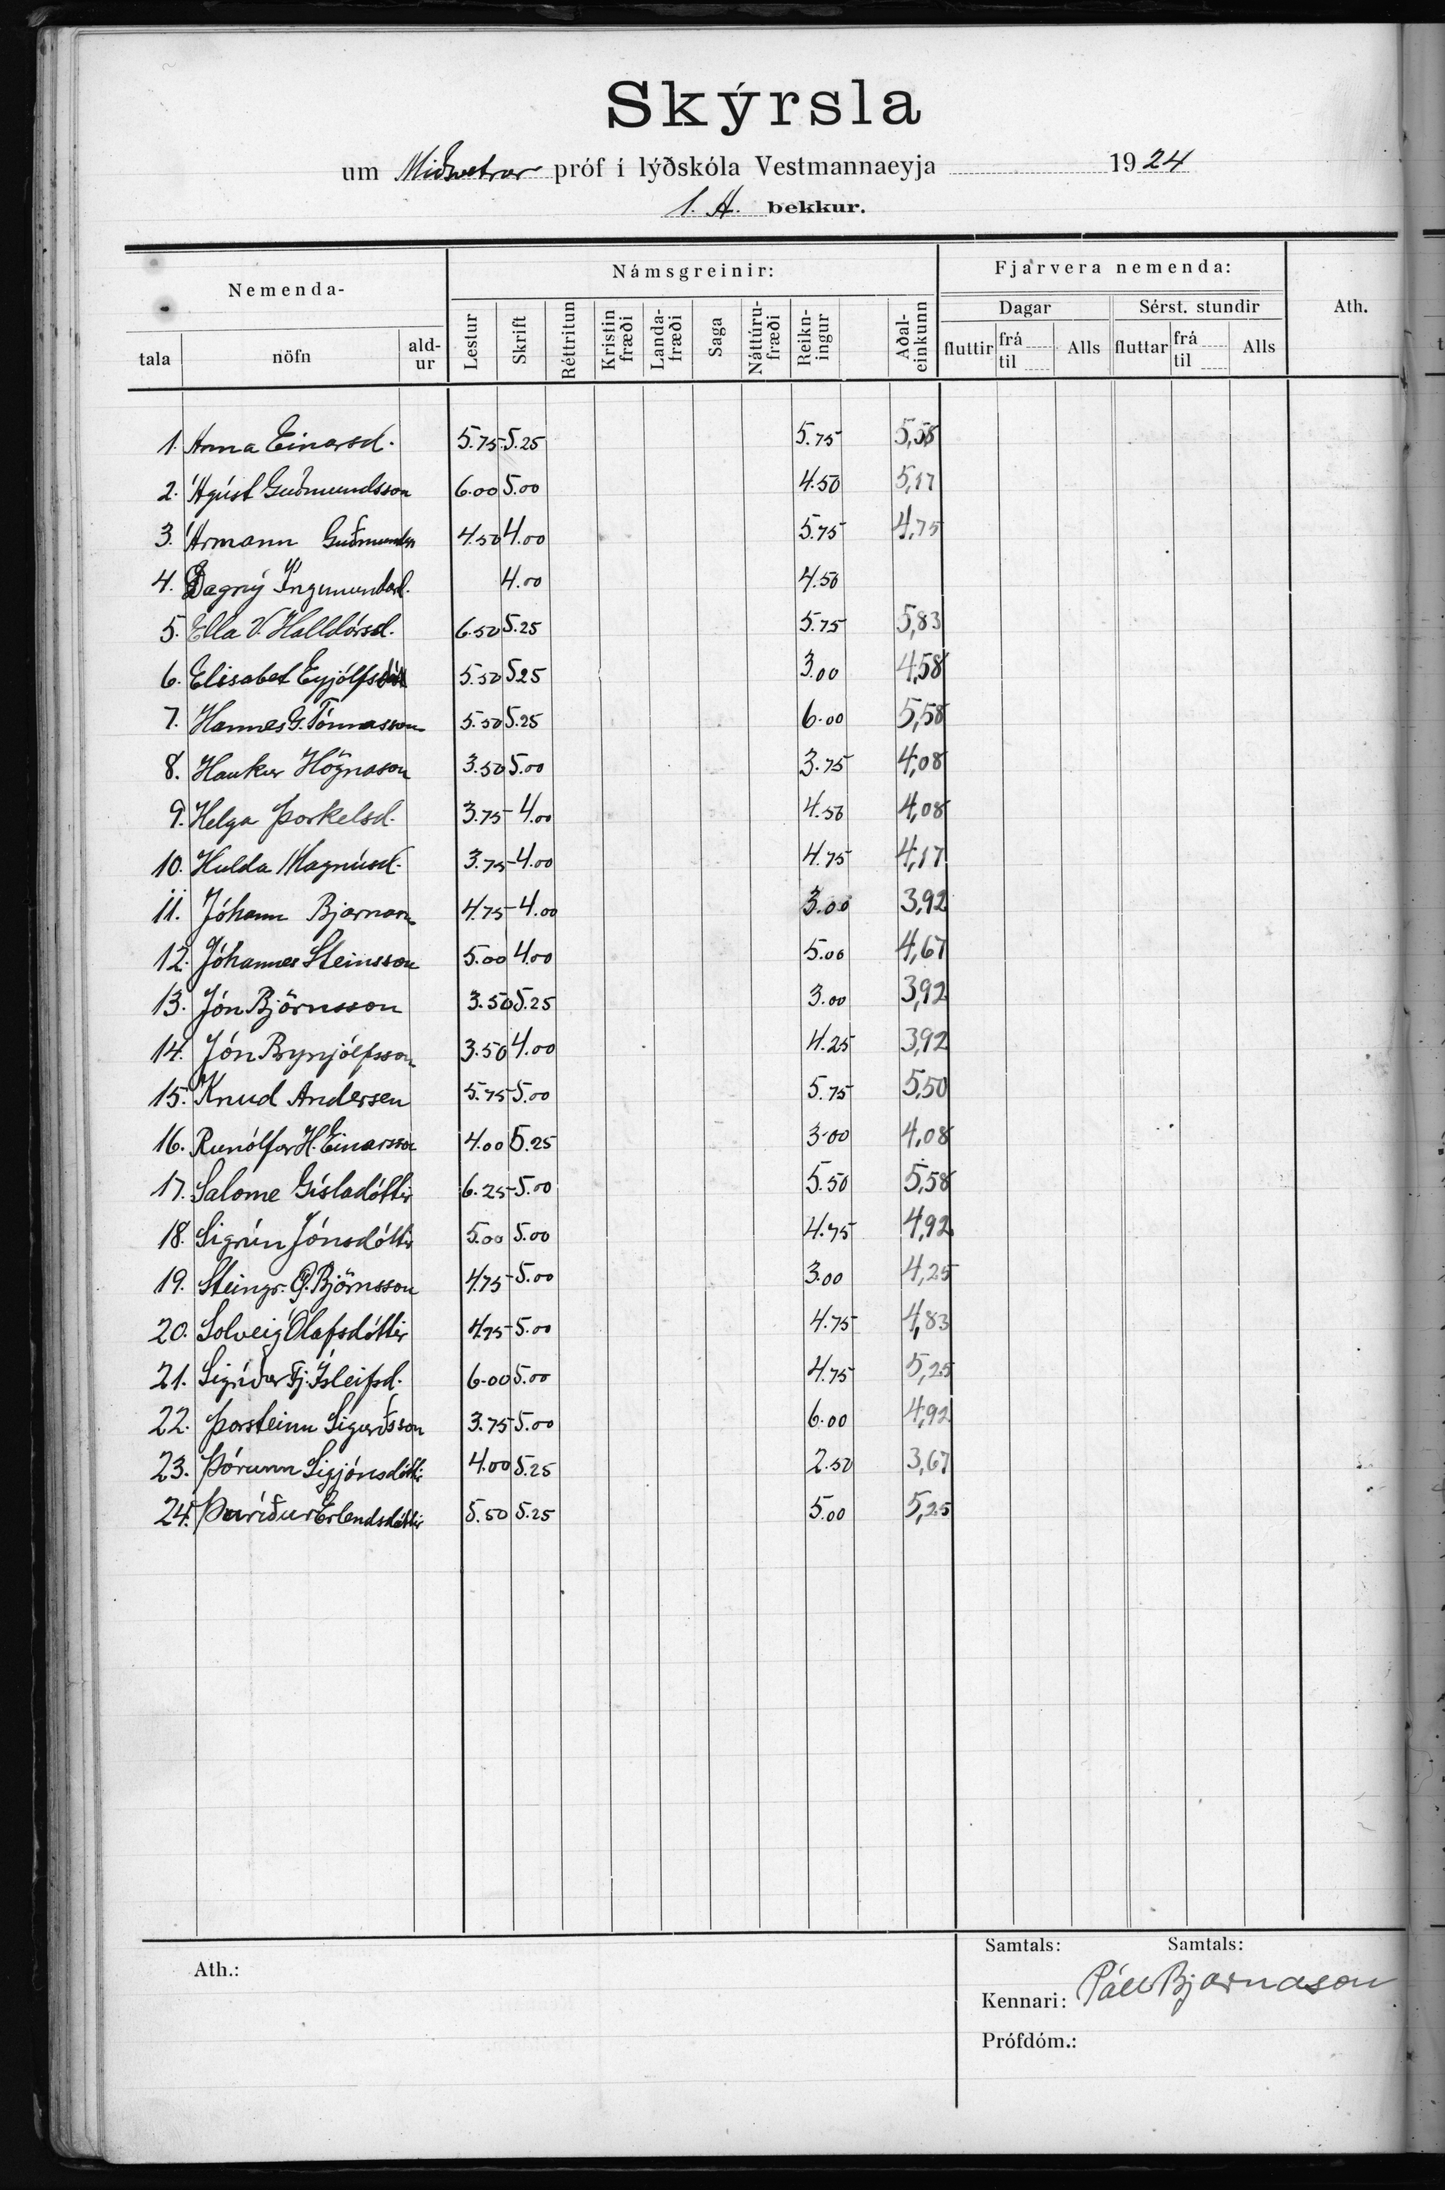 Skýrsla
um Miðvetrar próf í lýðskóla Vestmannaeyja 1924
1. A. bekkur.
Nemenda- Námsgreinir: Fjarvera nemenda: Ath.
Dagar Sérst. stundir
tala nöfn ald-ur Lestur Skrift Réttritun Kristin fræði Landa-fræði Saga Náttúru-fræði Reikn-ingur Aðal-einkunn fluttir frá til Alls fluttar frá til Alls
1. Anna Einarsd. 5.75 5.25 5.75 5,58
2. Ágúst Guðmundsson 6.00 5.00 4.50 5,17
3. Ármann Guðmunds 4.50 4.00 5.75 4,75
4. Dagný Ingimundard. 4.00 4.50
5. Ella V. Halldórsd. 6.50 5.25 5.75 5,83
6. Elisabet Eyjólfsdótt 5.50 5.25 3.00 4,58
7. Hannes G. Tómasson 5.50 5.25 6.00 5,58
8. Haukur Högnason 3.50 5.00 3.75 4,08
9. Helga Þorkelsd. 3.75 4.00 4.50 4,08
10. Hulda Magnúsd. 3.75 4.00 4.75 4,17
11. Jóhann Bjarnas 4.75 4.00 3.00 3,92
12. Jóhannes Steinsson 5.00 4.00 5.00 4,67
13. Jón Björnsson 3.50 5.25 3.00 3,92
14. Jón Brynjólfsson 3.50 4.00 4.25 3,92
15. Knud Andersen 5.75 5.00 5.75 5,50
16. Runólfur H. Einarsson 4.00 5.25 3.00 4,08
17. Salome Gísladóttir 6.25 5.00 5.50 5,58
18. Sigrún Jónsdóttir 5.00 5.00 4.75 4,92
19. Steingr. Q. Björnsson 4.75 5.00 3.00 4,25
20. Solveig Ólafsdóttir 4.75 5.00 4.75 4,83
21. Sigríður Fj. Ísleifsd. 6.00 5.00 4.75 5,25
22. Þorsteinn Sigurðsson 3.75 5.00 6.00 4,92
23. Þórunn Sigjónsdóttir 4.00 5.25 2.50 3,67
24. Þuríður Erlendsdóttir 5.50 5.25 5.00 5,25
Samtals: Samtals:
Ath.:
Kennari: Páll Bjarnason
Prófdóm.: